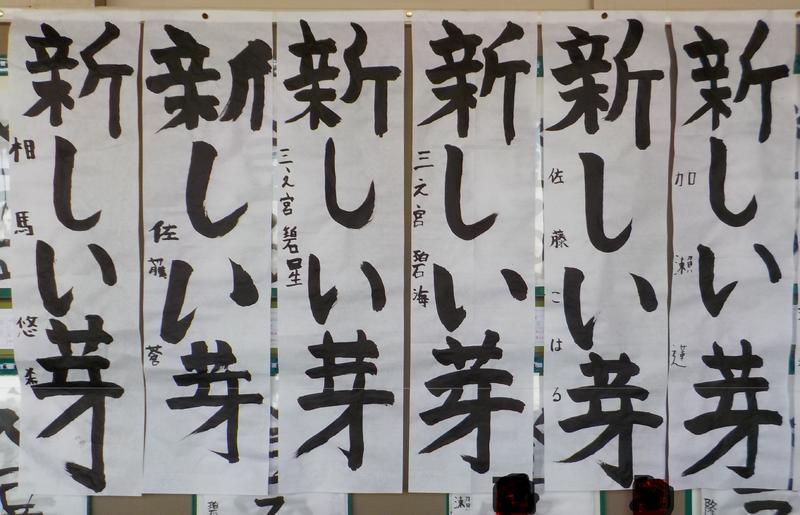 新しい芽
加瀬蓮
新しい芽
佐藤こはる
新しい芽
三之宮碧海
新しい芽
三之宮碧星
新しい芽
佐藤
新しい芽
相馬悠